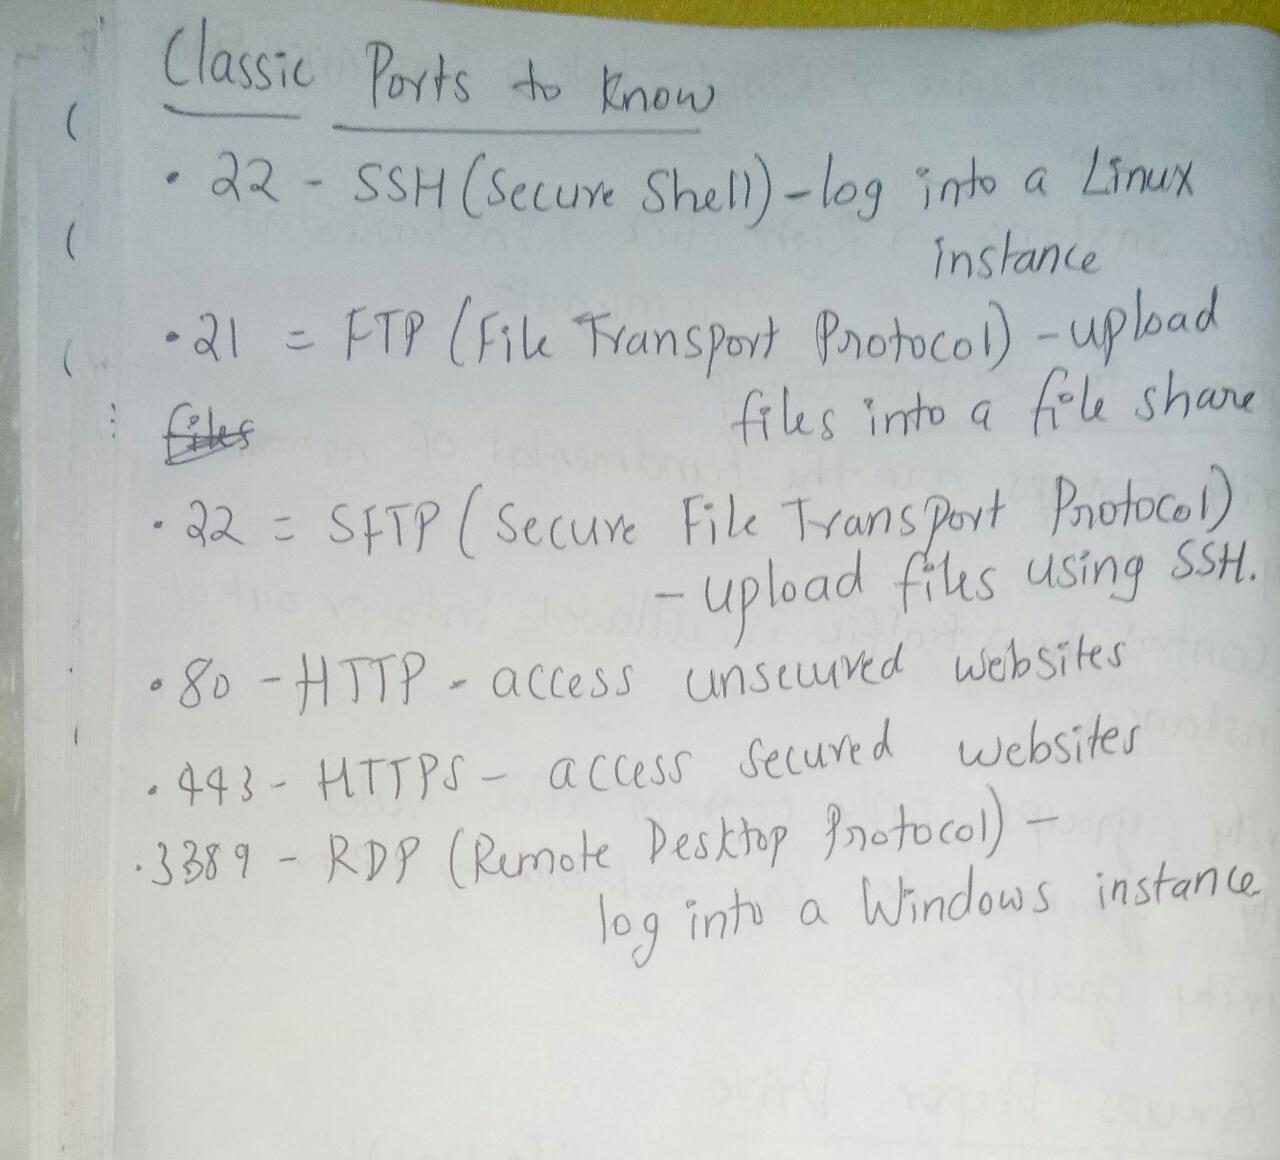 Classic Ports to Know
• 22 - SSH (Secure Shell) - log into a Linux
instance
• 21 = FTP (File Transport Protocol) - upload
files into a file share
• 22 = SFTP (Secure File Transport Protocol)
- upload files using SSH.
• 80 - HTTP - access unsecured websites
• 443 - HTTPS - access secured websites
• 3389 - RDP (Remote Desktop Protocol) -
log into a Windows instance